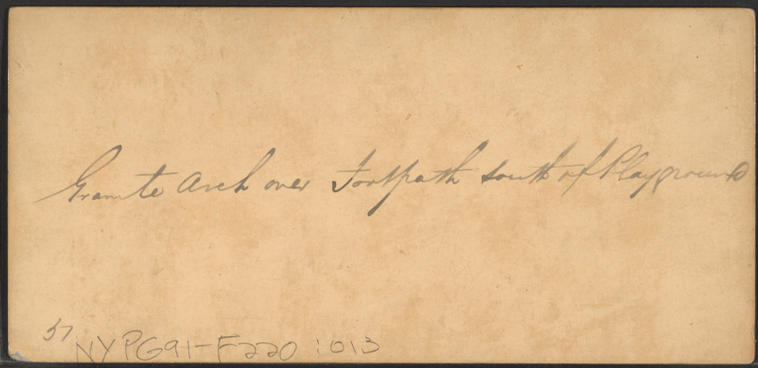 Granite Arch over Footpath south of Playground
57
NYPG91-F220 :013